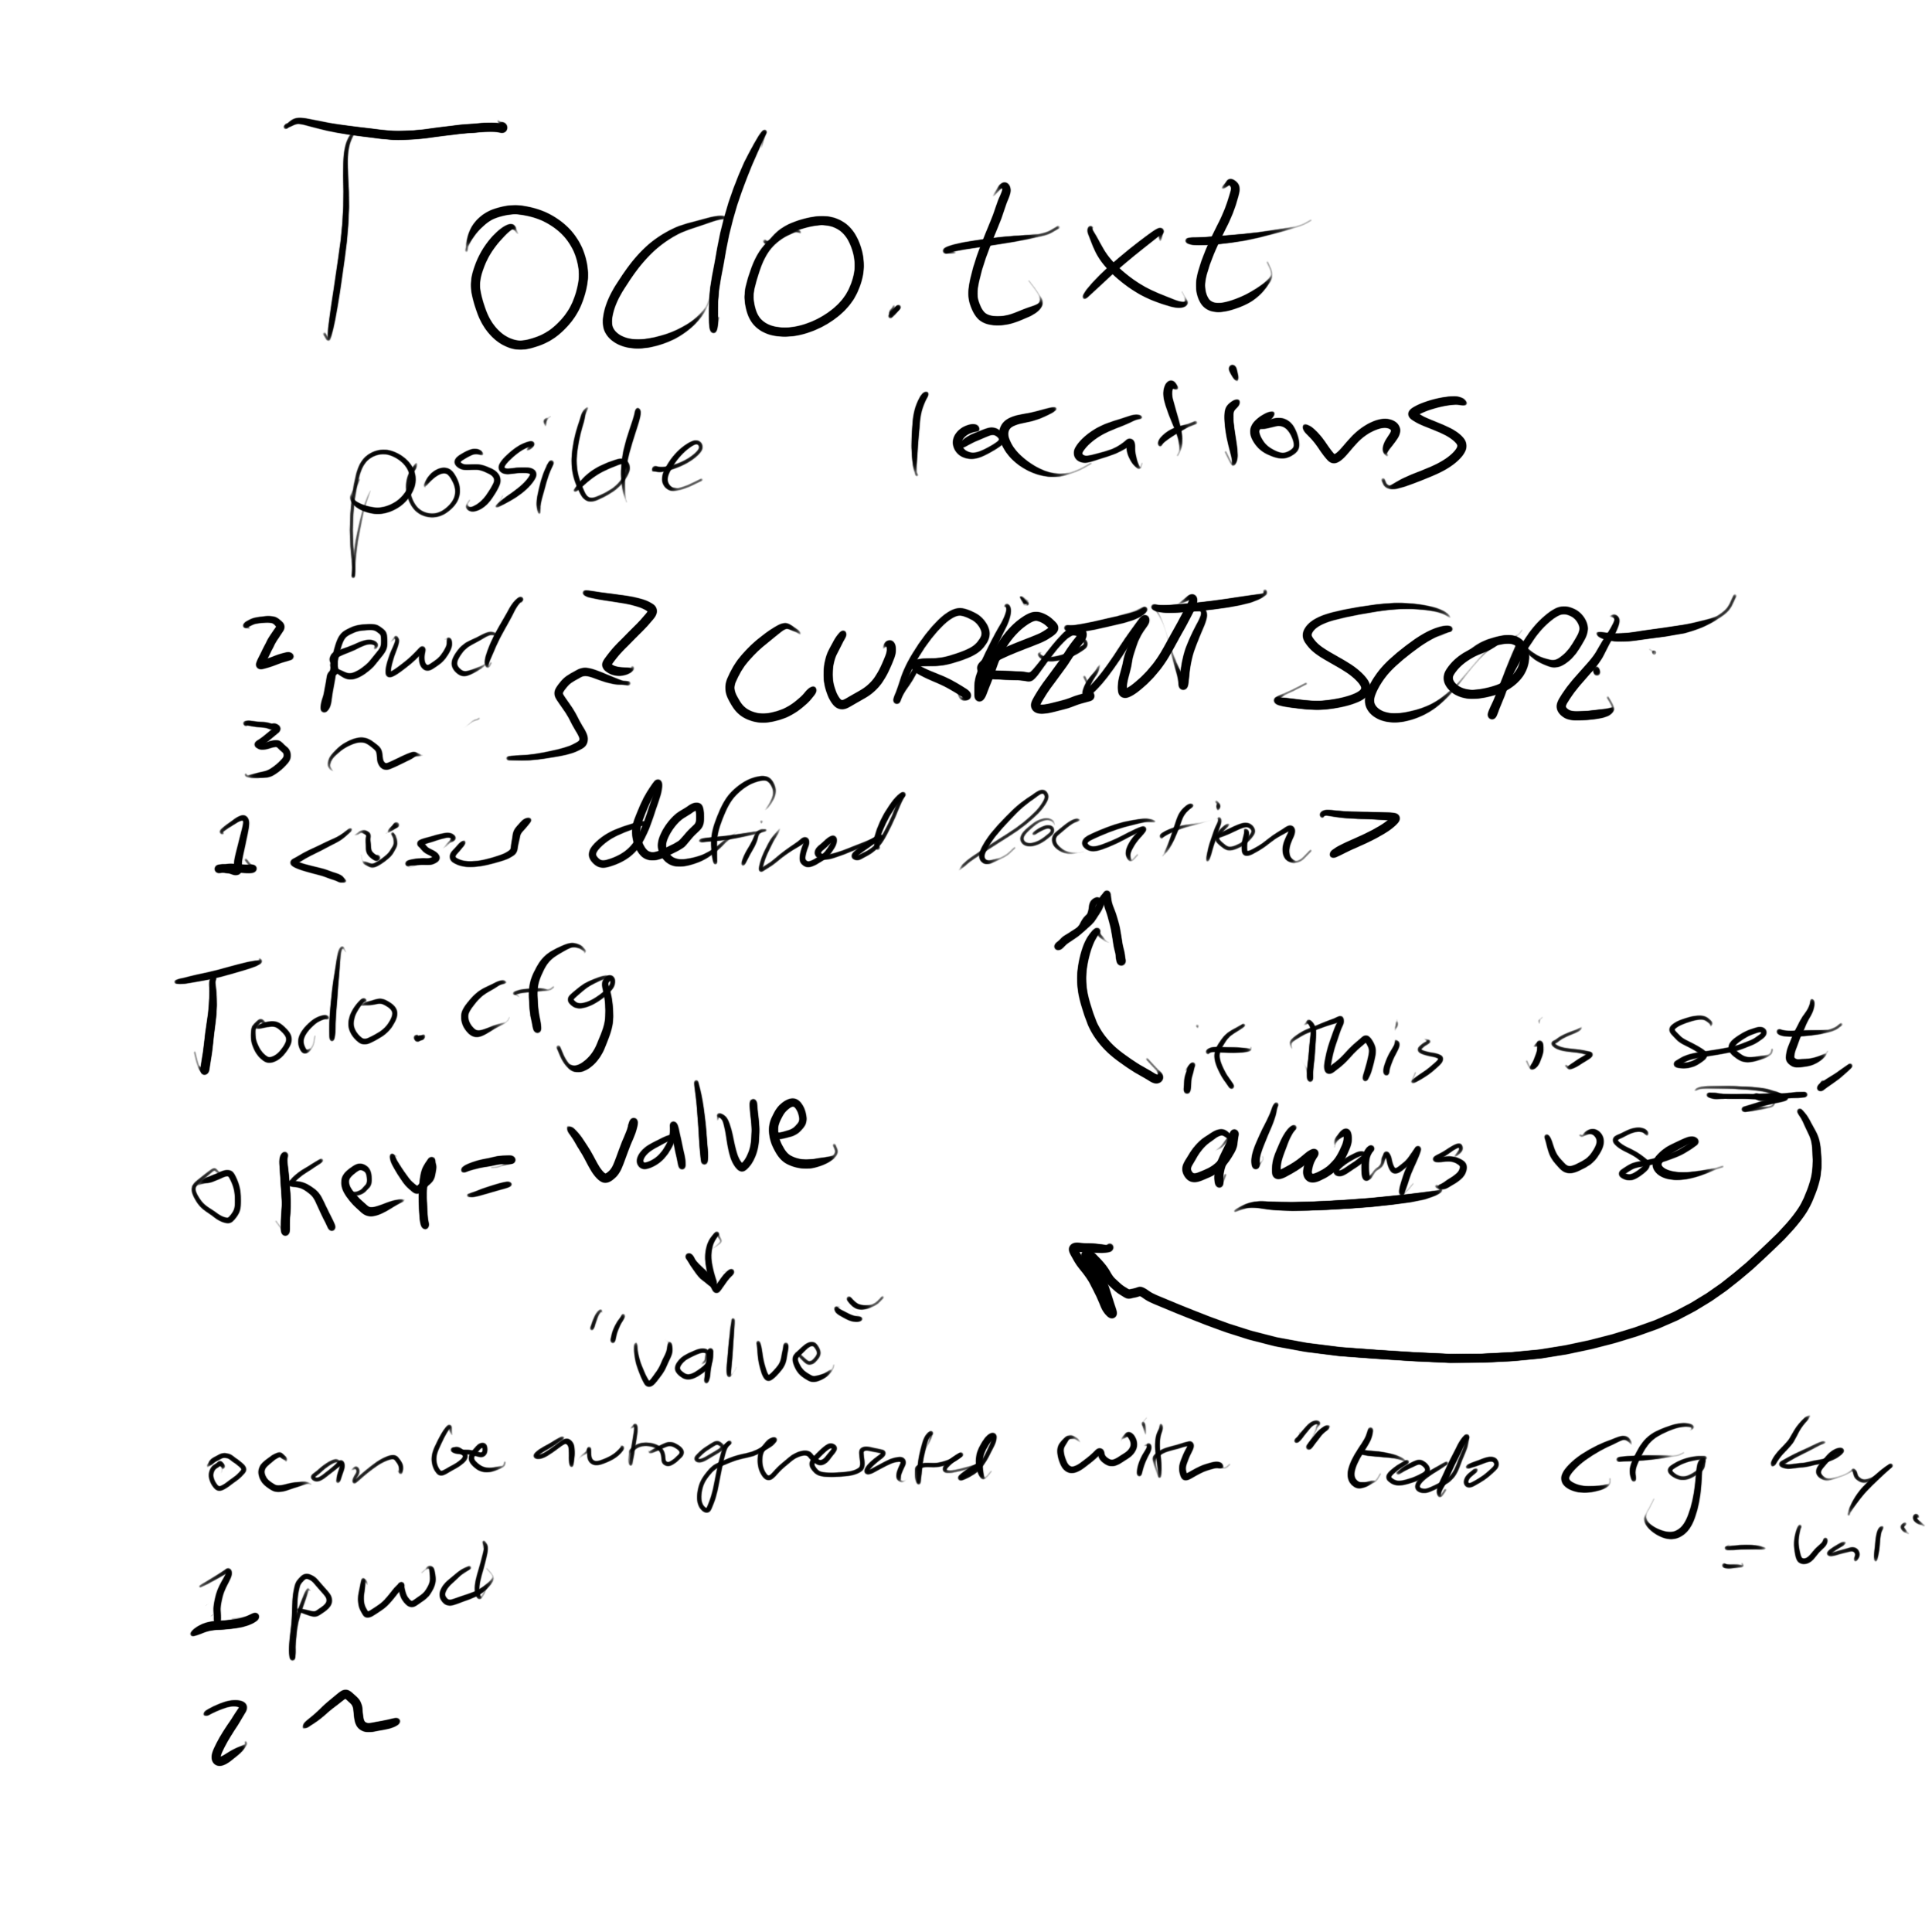 Todo.txt
possible locations
2 pwd } CURRENT SCOPE
3 ~
1 <user defined location>
Todo.cfg
if this is set,
always use
o key = value
"value"
o can be autogenerated with "todo cfg key
= val"
1 pwd
2 ~